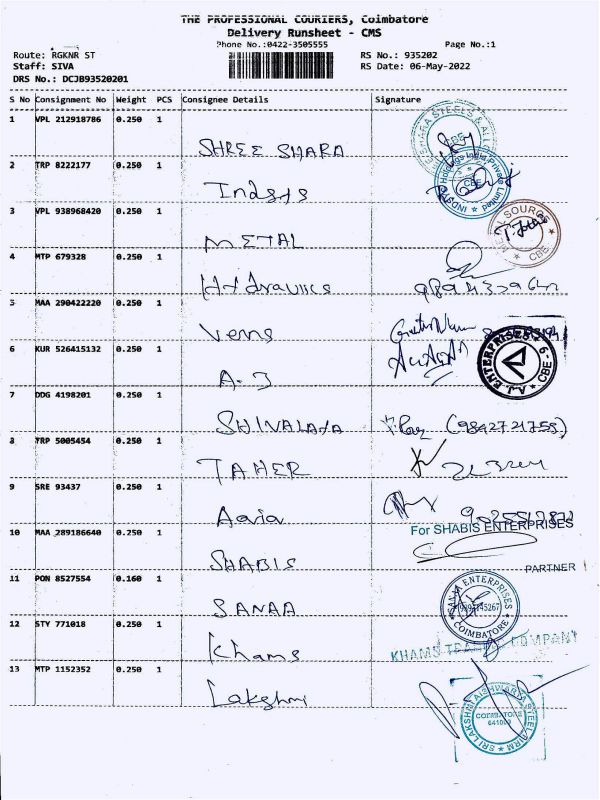 THE PROFESSIONAL COURIERS, Coimbatore
Delivery Runsheet - CMS
Phone No.:0422-3505555 Page No.:1
Route: RGKNR ST RS No.: 935202
Staff: SIVA RS Date: 06-May-2022
DRS No.: DCJB93520201
S No Consignment No Weight PCS Consignee Details Signature
1 VPL 212918786 0.250 1
SHREE SHARA
2 TRP 8222177 0.250 1
Indsys
3 VPL 938968420 0.250 1
METAL
4 MTP 679328 0.250 1
Hydraulics
5 MAA 290422220 0.250 1
Vens
6 KUR 526415132 0.250 1
A-J
ENTERPRISES CBE-9
7 DDG 4198201 0.250 1
SHIVALAYA (9842721758)
8 TRP 5005454 0.250 1
TAHER
9 SRE 93437 0.250 1
Aaria
For SHABIS ENTERPRISES
10 MAA 289186640 0.250 1
SHABIS
PARTNER
11 PON 8527554 0.160 1
SANAA
ENTERPRISES
COIMBATORE
12 STY 771018 0.250 1
Khams
KHAMS COMPANY
13 MTP 1152352 0.250 1
Lakshmi
COIMBATORE